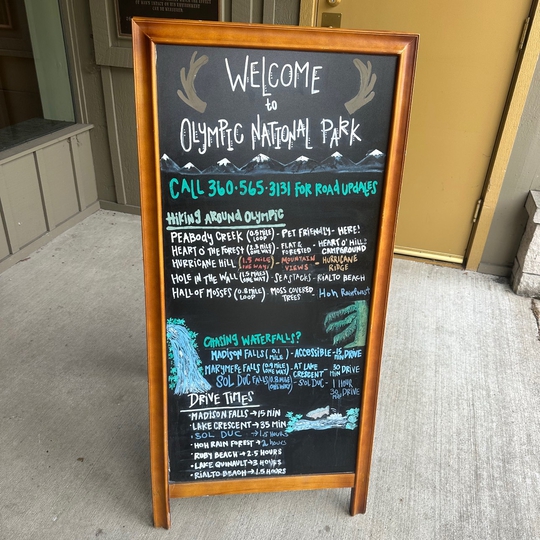 WELCOME
to
OLYMPIC NATIONAL PARK
CALL 360-565-3131 FOR ROAD UPDATES
HIKING AROUND OLYMPIC
PEABODY CREEK (0.5 MILE LOOP) - PET FRIENDLY - HERE!
HEART O' THE FOREST (MILE ONE WAY) - FLAT & FORESTED - HEART O' HILLS CAMPGROUND
HURRICANE HILL (1.5 MILE ONE WAY) - MOUNTAIN VIEWS - HURRICANE RIDGE
HOLE IN THE WALL (1.5 MILES ONE WAY) - SEASTACKS - RIALTO BEACH
HALL OF MOSSES (0.8 MILE LOOP) MOSS COVERED TREES - Hoh Rainforest
CHASING WATERFALLS?
MADISON FALLS (0.1 MILE) - ACCESSIBLE - 15 MIN DRIVE
MARYMERE FALLS (0.9 MILE ONE WAY) - AT LAKE CRESCENT - 30 MIN DRIVE
SOL DUC FALLS (0.8 MILE ONE WAY) - SOL DUC - 1 HOUR 30 MIN DRIVE
DRIVE TIMES
• MADISON FALLS → 15 MIN
• LAKE CRESCENT → 35 MIN
• SOL DUC → 1.5 HOURS
• HOH RAIN FOREST → 2 hours
• RUBY BEACH → 2.5 HOURS
• LAKE QUINAULT → 3 HOURS
• RIALTO BEACH → 1.5 HOURS